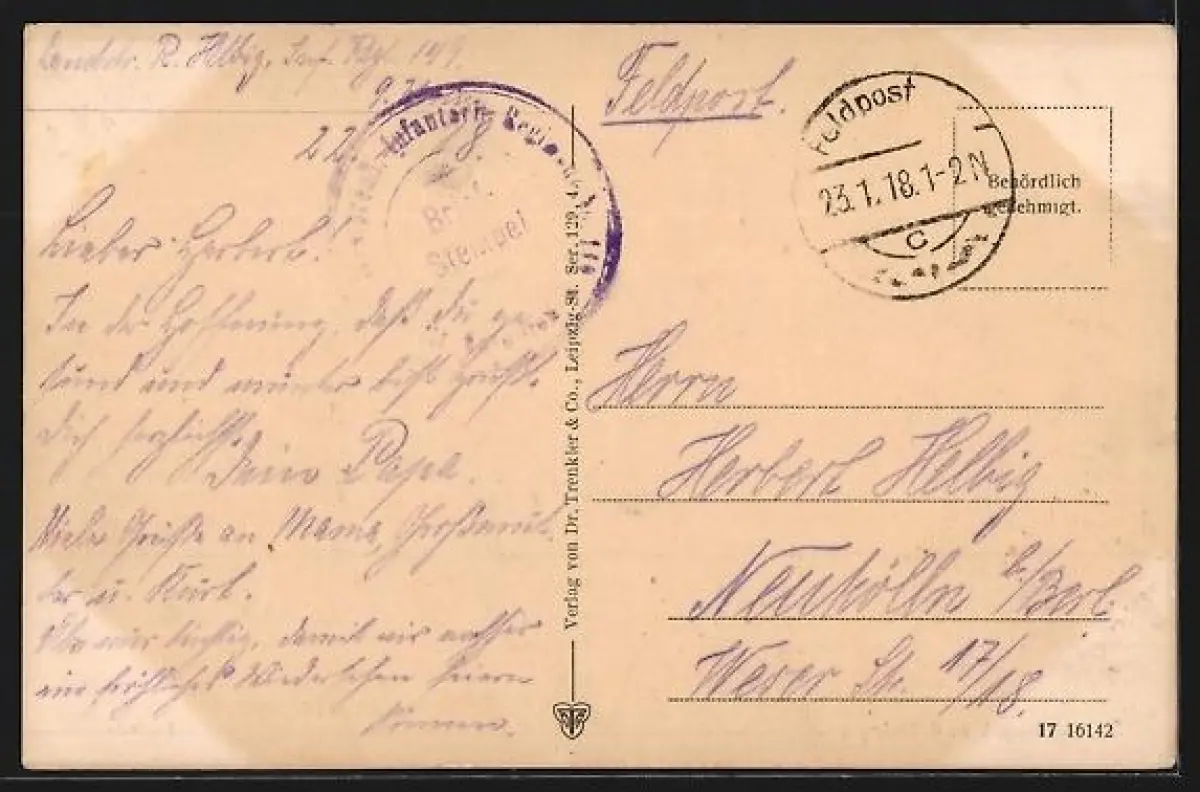 Landstr. R. Helbig, Inf. Rgt. 149.
22. 18
Infanterie Regiment Nr.
Brief
Stempel
Lieber Herbert!
In der Hoffnung, daß du ge-
sund und munter bist grüßt
Dich herzlichst
Dein Papa.
Viele Grüße an Mama, Großmut-
ter u. Kurt.
Übe nur tüchtig, damit wir nachher
ein fröhliches Wiedersehen feiern
können.
Verlag von Dr. Trenkler & Co., Leipzig-St. Ser. 129,
Feldpost.
Feldpost
23.1.18.1-2N
c
Behördlich
genehmigt.
Herrn
Herbert Helbig
Neukölln b/Berl
Weser Str. 17/18.
17 16142